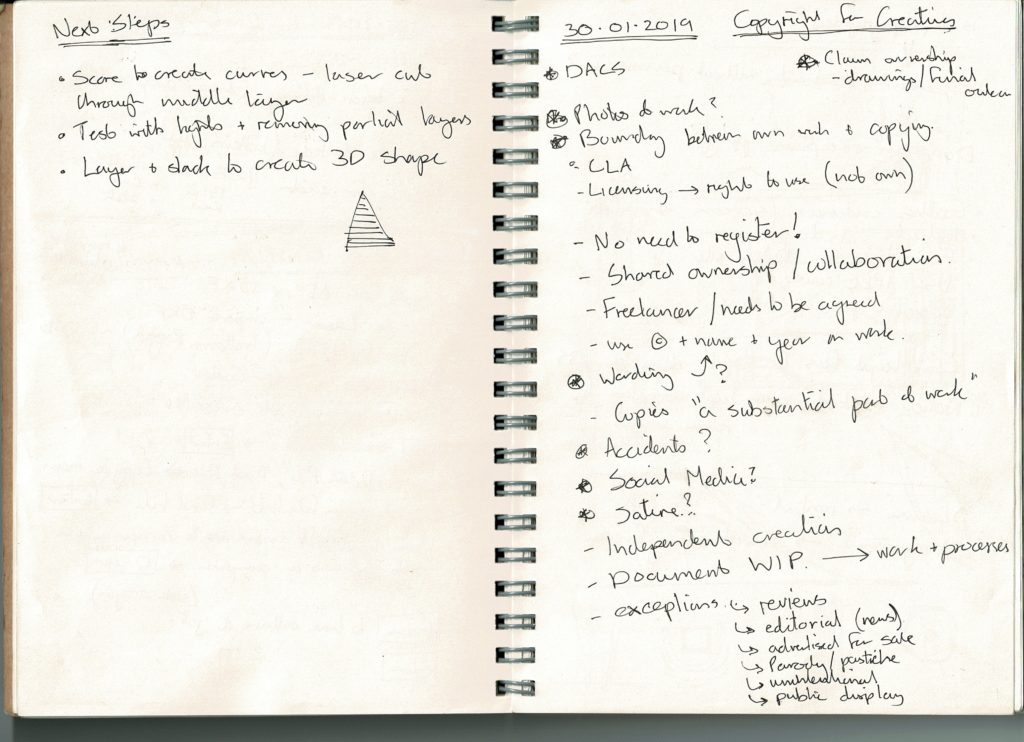 Next Steps
• Score to create curves – laser cut
through middle layer
• Test with lights + removing partial layers
• Layer + stack to create 3D shape
30.01.2019
Copyright for Creatives
* DACS
* Claim ownership
- drawings/final
* Photos of work?
* Boundary between own work + copying.
• CLA
- Licensing → right to use (not own)
- No need to register!
- Shared ownership / collaboration.
- Freelancer / needs to be agreed
- use © + name + year on work.
* Wording ↑?
- Copies "a substantial part of work"
* Accidents?
* Social Media?
* Satire?
- Independent creation
- Document WIP. → work + processes
- exceptions. ↳ reviews
↳ editorial (news)
↳ advertised for sale
↳ Parody/pastiche
↳ unintentional
↳ public display